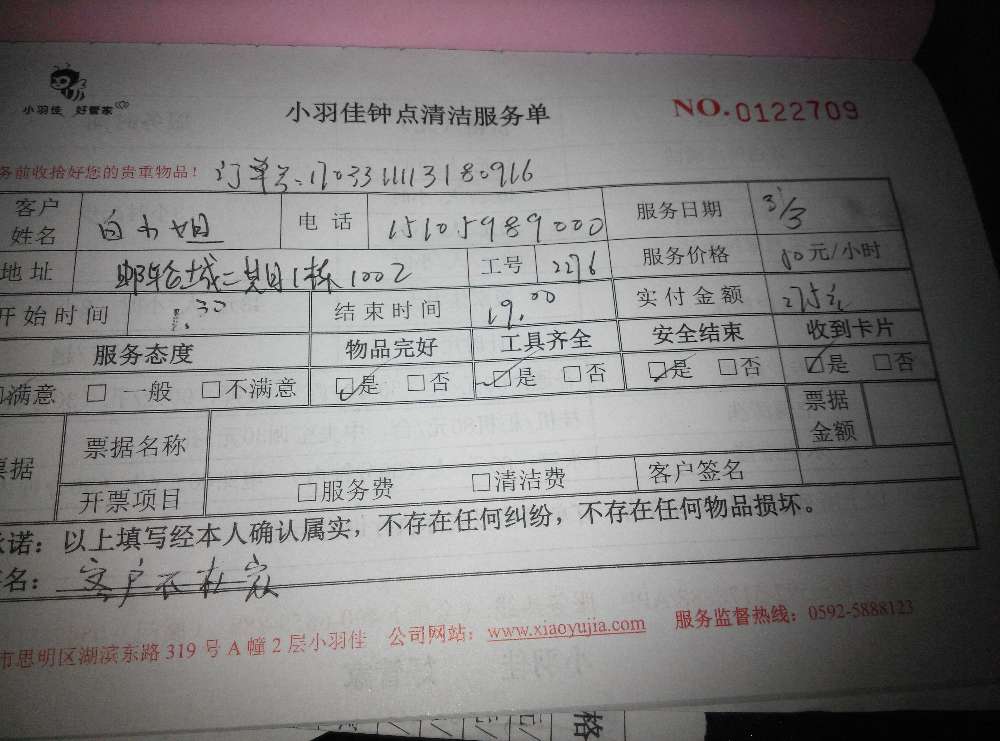 小羽佳 好管家
小羽佳钟点清洁服务单 NO.0122709
务前收拾好您的贵重物品! 订单号:17033111131 80916
客户姓名 白小姐 电话 15105989000 服务日期 3/3
地址 邮轮城二期1栋1002 工号 2276 服务价格 80元/小时
开始时间 :30 结束时间 19:00 实付金额 275元
服务态度 物品完好 工具齐全 安全结束 收到卡片
□满意 □一般 □不满意 ☑是 □否 ☑是 □否 ☑是 □否 ☑是 □否
票据 票据名称 票据金额
开票项目 □服务费 □清洁费 客户签名
承诺:以上填写经本人确认属实,不存在任何纠纷,不存在任何物品损坏。
签名: 客户不在家
市思明区湖滨东路319号A幢2层小羽佳 公司网站:www.xiaoyujia.com 服务监督热线:0592-5888123
格